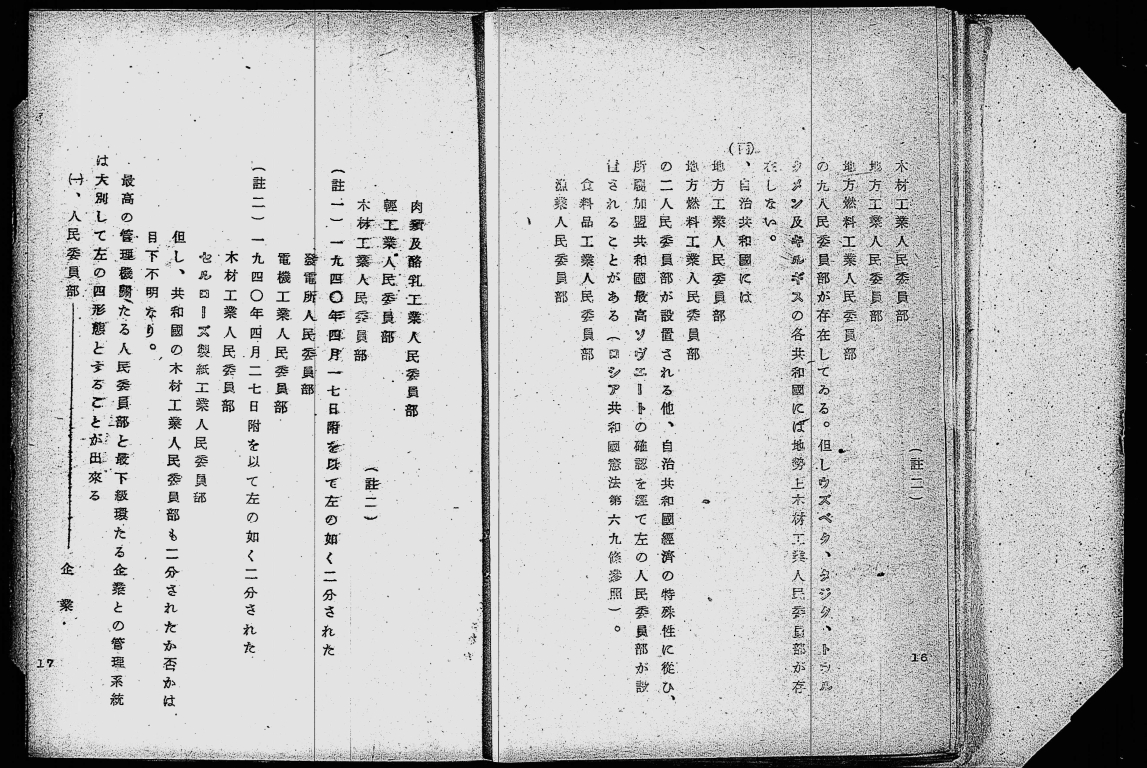 木材工業人民委員部
（註二）
地方工業人民委員部
地方燃料工業人民委員部
の九人民委員部が存在してゐる。但しウズベク、タジク、トウル
クメン及キルギスの各共和國には地勢上木材工業人民委員部が存
在しない。
、自治共和國には
地方工業人民委員部
地方燃料工業人民委員部
の二人民委員部が設置される他、自治共和國經濟の特殊性に從ひ、
所屬加盟共和國最高ソヴエートの確認を經て左の人民委員部が設
置されることがある（ロシア共和國憲法第六九條參照）。
食料品工業人民委員部
漁業人民委員部
16
肉類及酪乳工業人民委員部
輕工業人民委員部
木材工業人民委員部
（註二）
（註一）一九四〇年四月一七日附を以て左の如く二分された
發電所人民委員部
電機工業人民委員部
（註二）一九四〇年四月二七日附を以て左の如く二分された
木材工業人民委員部
セルローズ製紙工業人民委員部
但し、共和國の木材工業人民委員部も二分されたか否かは
目下不明なり。
最高の管理機關たる人民委員部と最下級環たる企業との管理系統
は大別して左の四形態とすることが出來る
㈠、人民委員部――――企業・
17